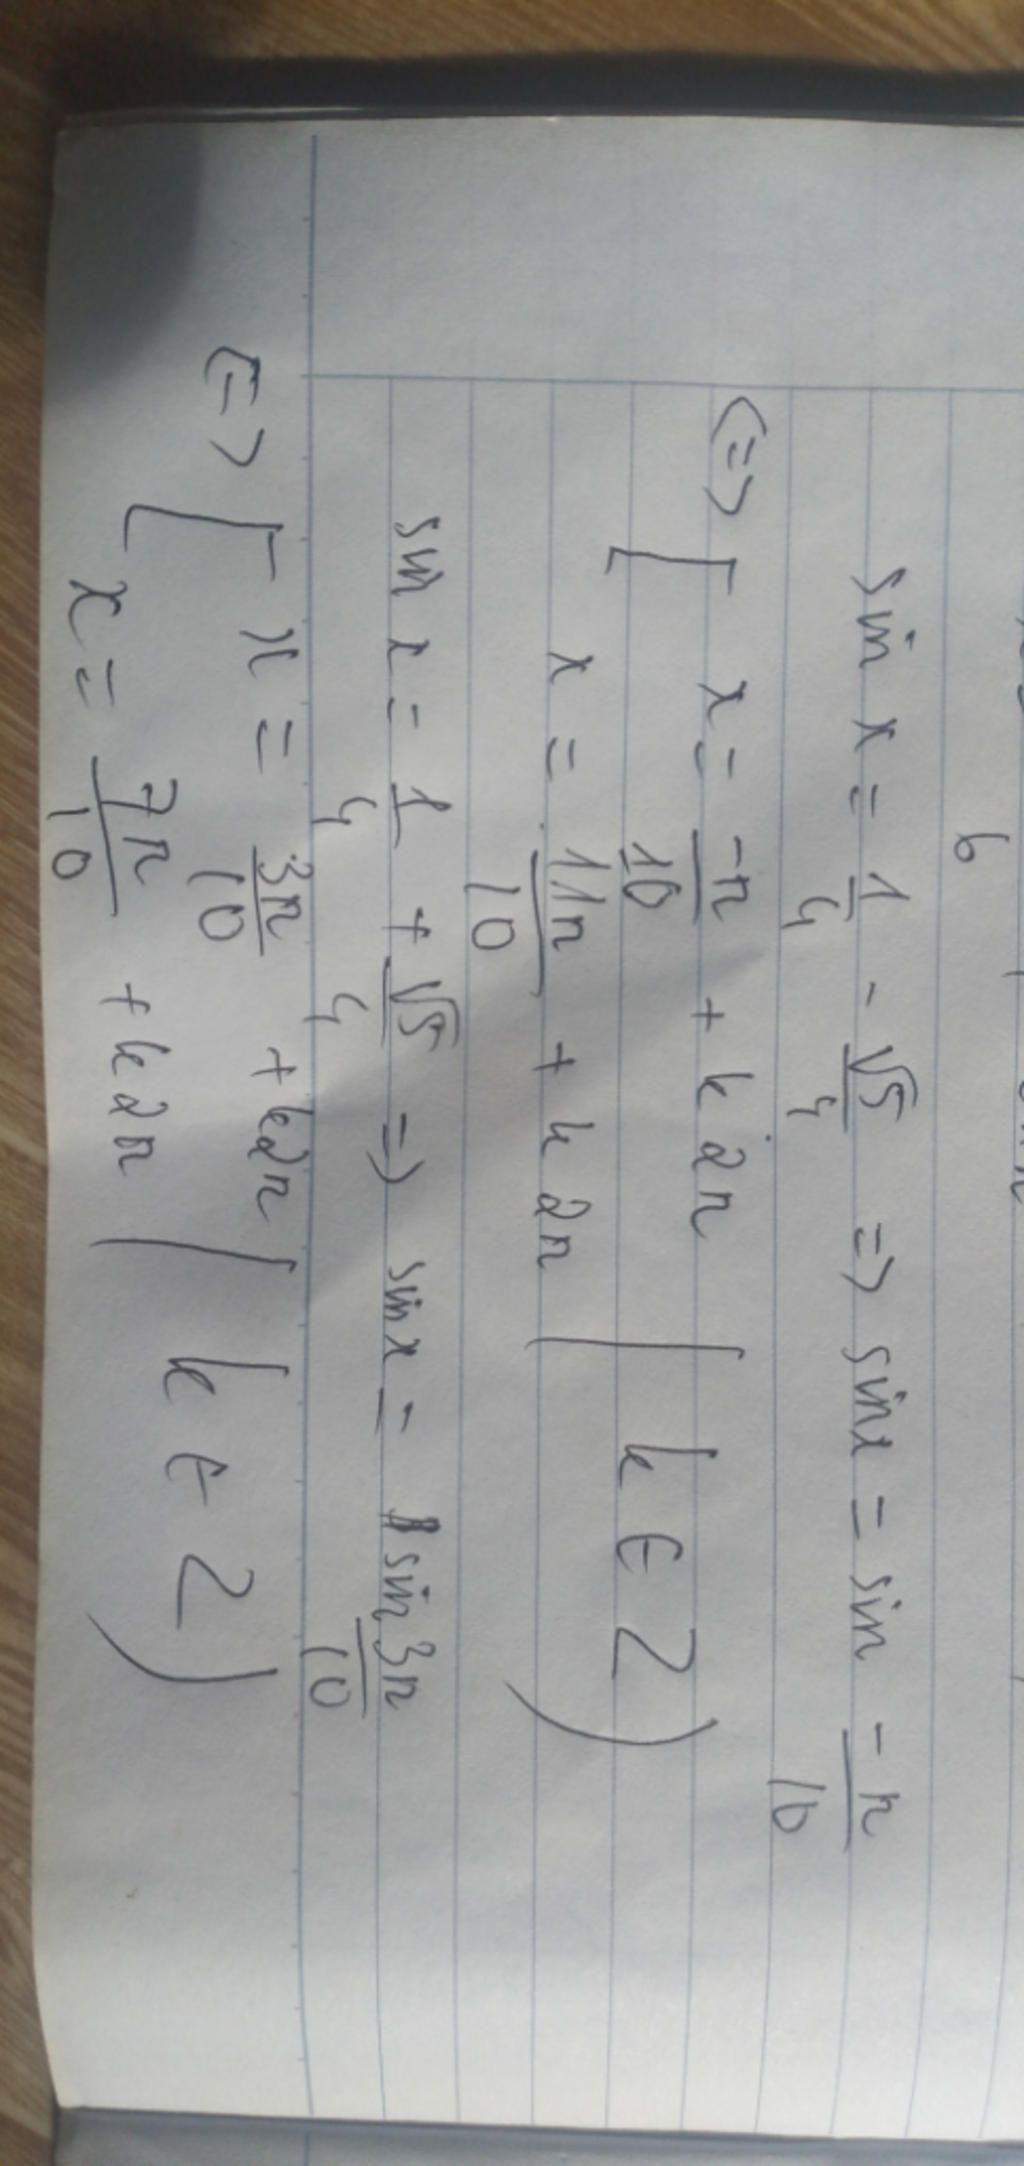 6
sin x = 1/4 - √5/4 => sin x = sin -π/10
<=> [ x = -π/10 + k2π
x = 11π/10 + k2π | k ∈ Z)
sin x = 1/4 + √5/4 => sin x = sin 3π/10
<=> [ x = 3π/10 + k2π
x = 7π/10 + k2π | k ∈ Z)